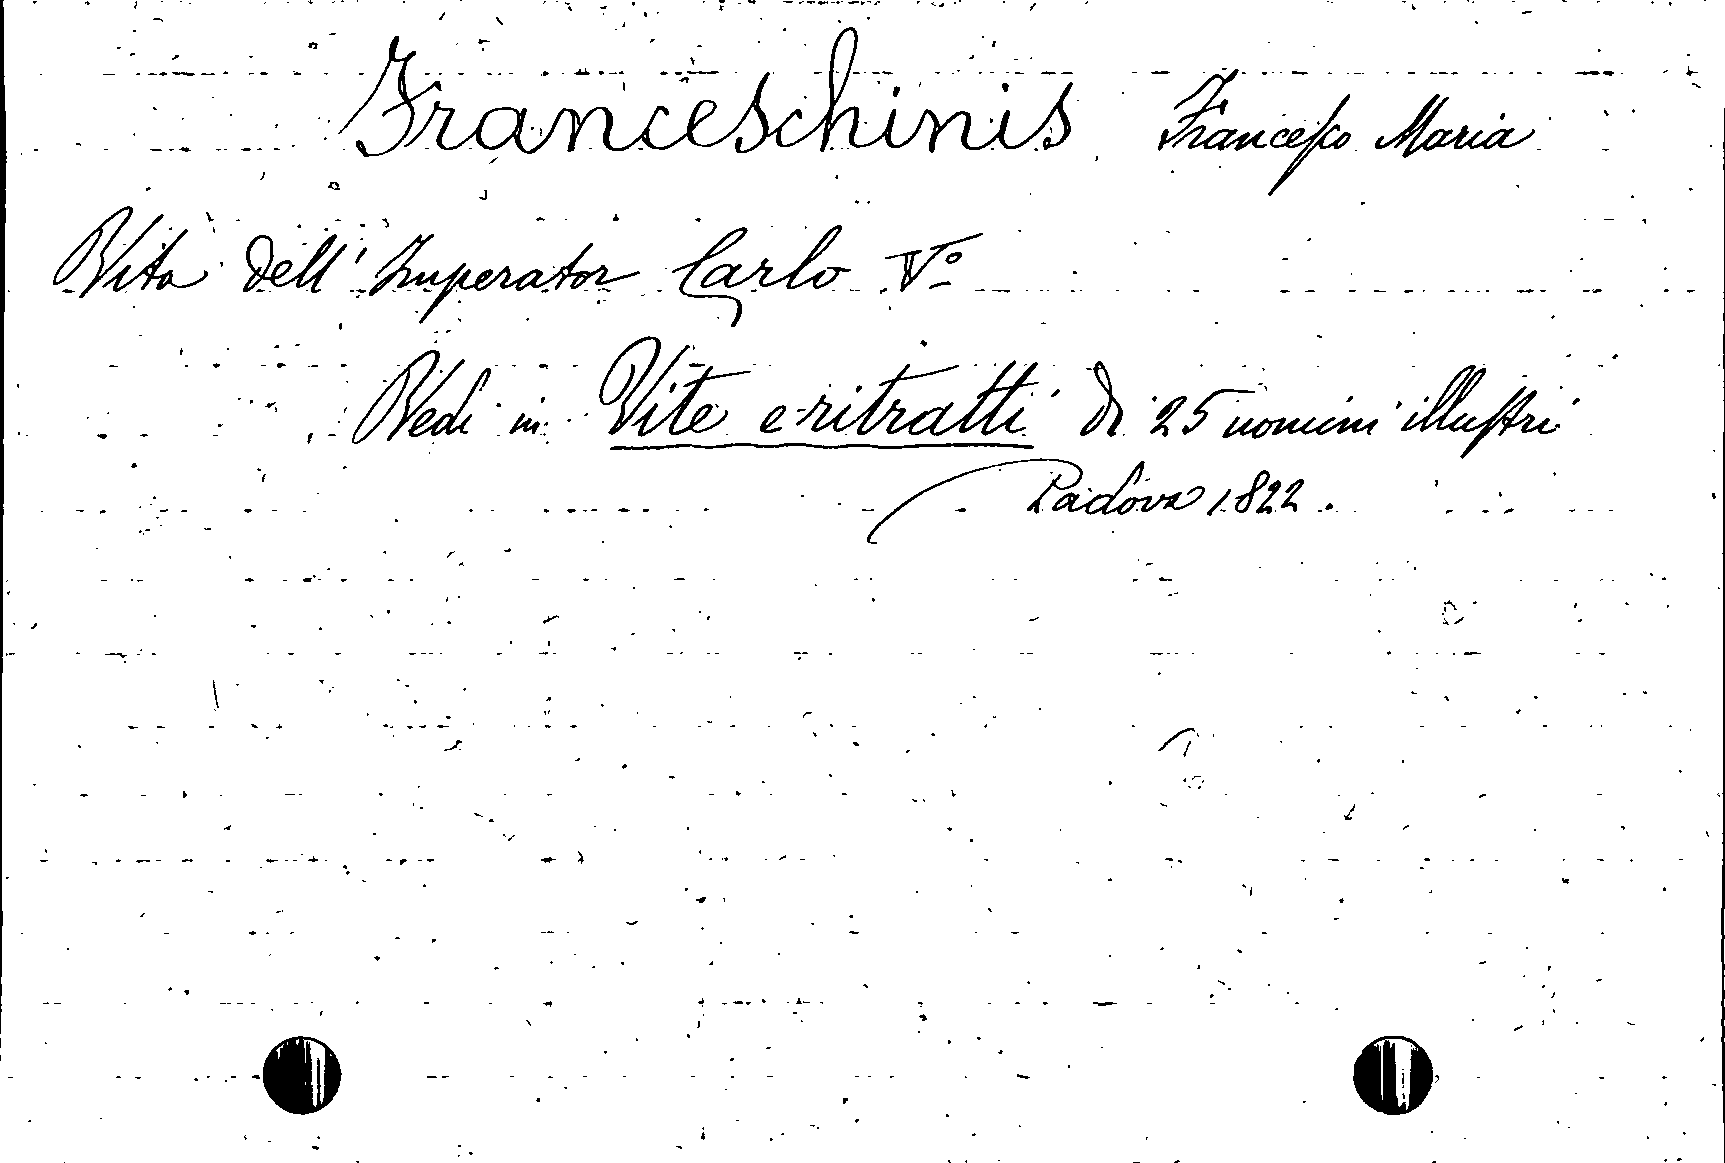 Franceschinis Francesco Maria
Vita dell' Imperator Carlo Vº
Vedi in Vite e ritratti di 25 uomini illustri
Padova 1822.